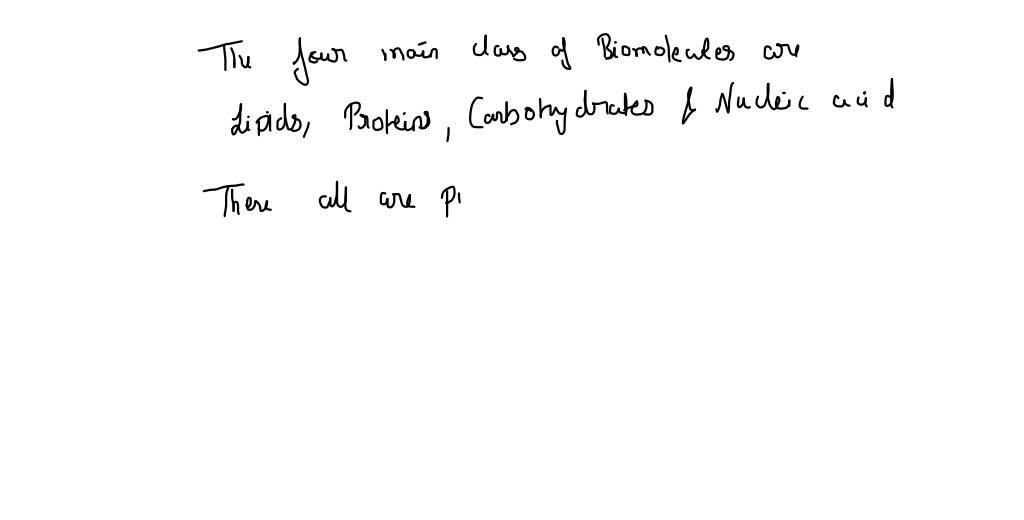 The four main class of Biomolecules are
Lipids, Proteins, Carbohydrates & Nucleic acid
There all are p